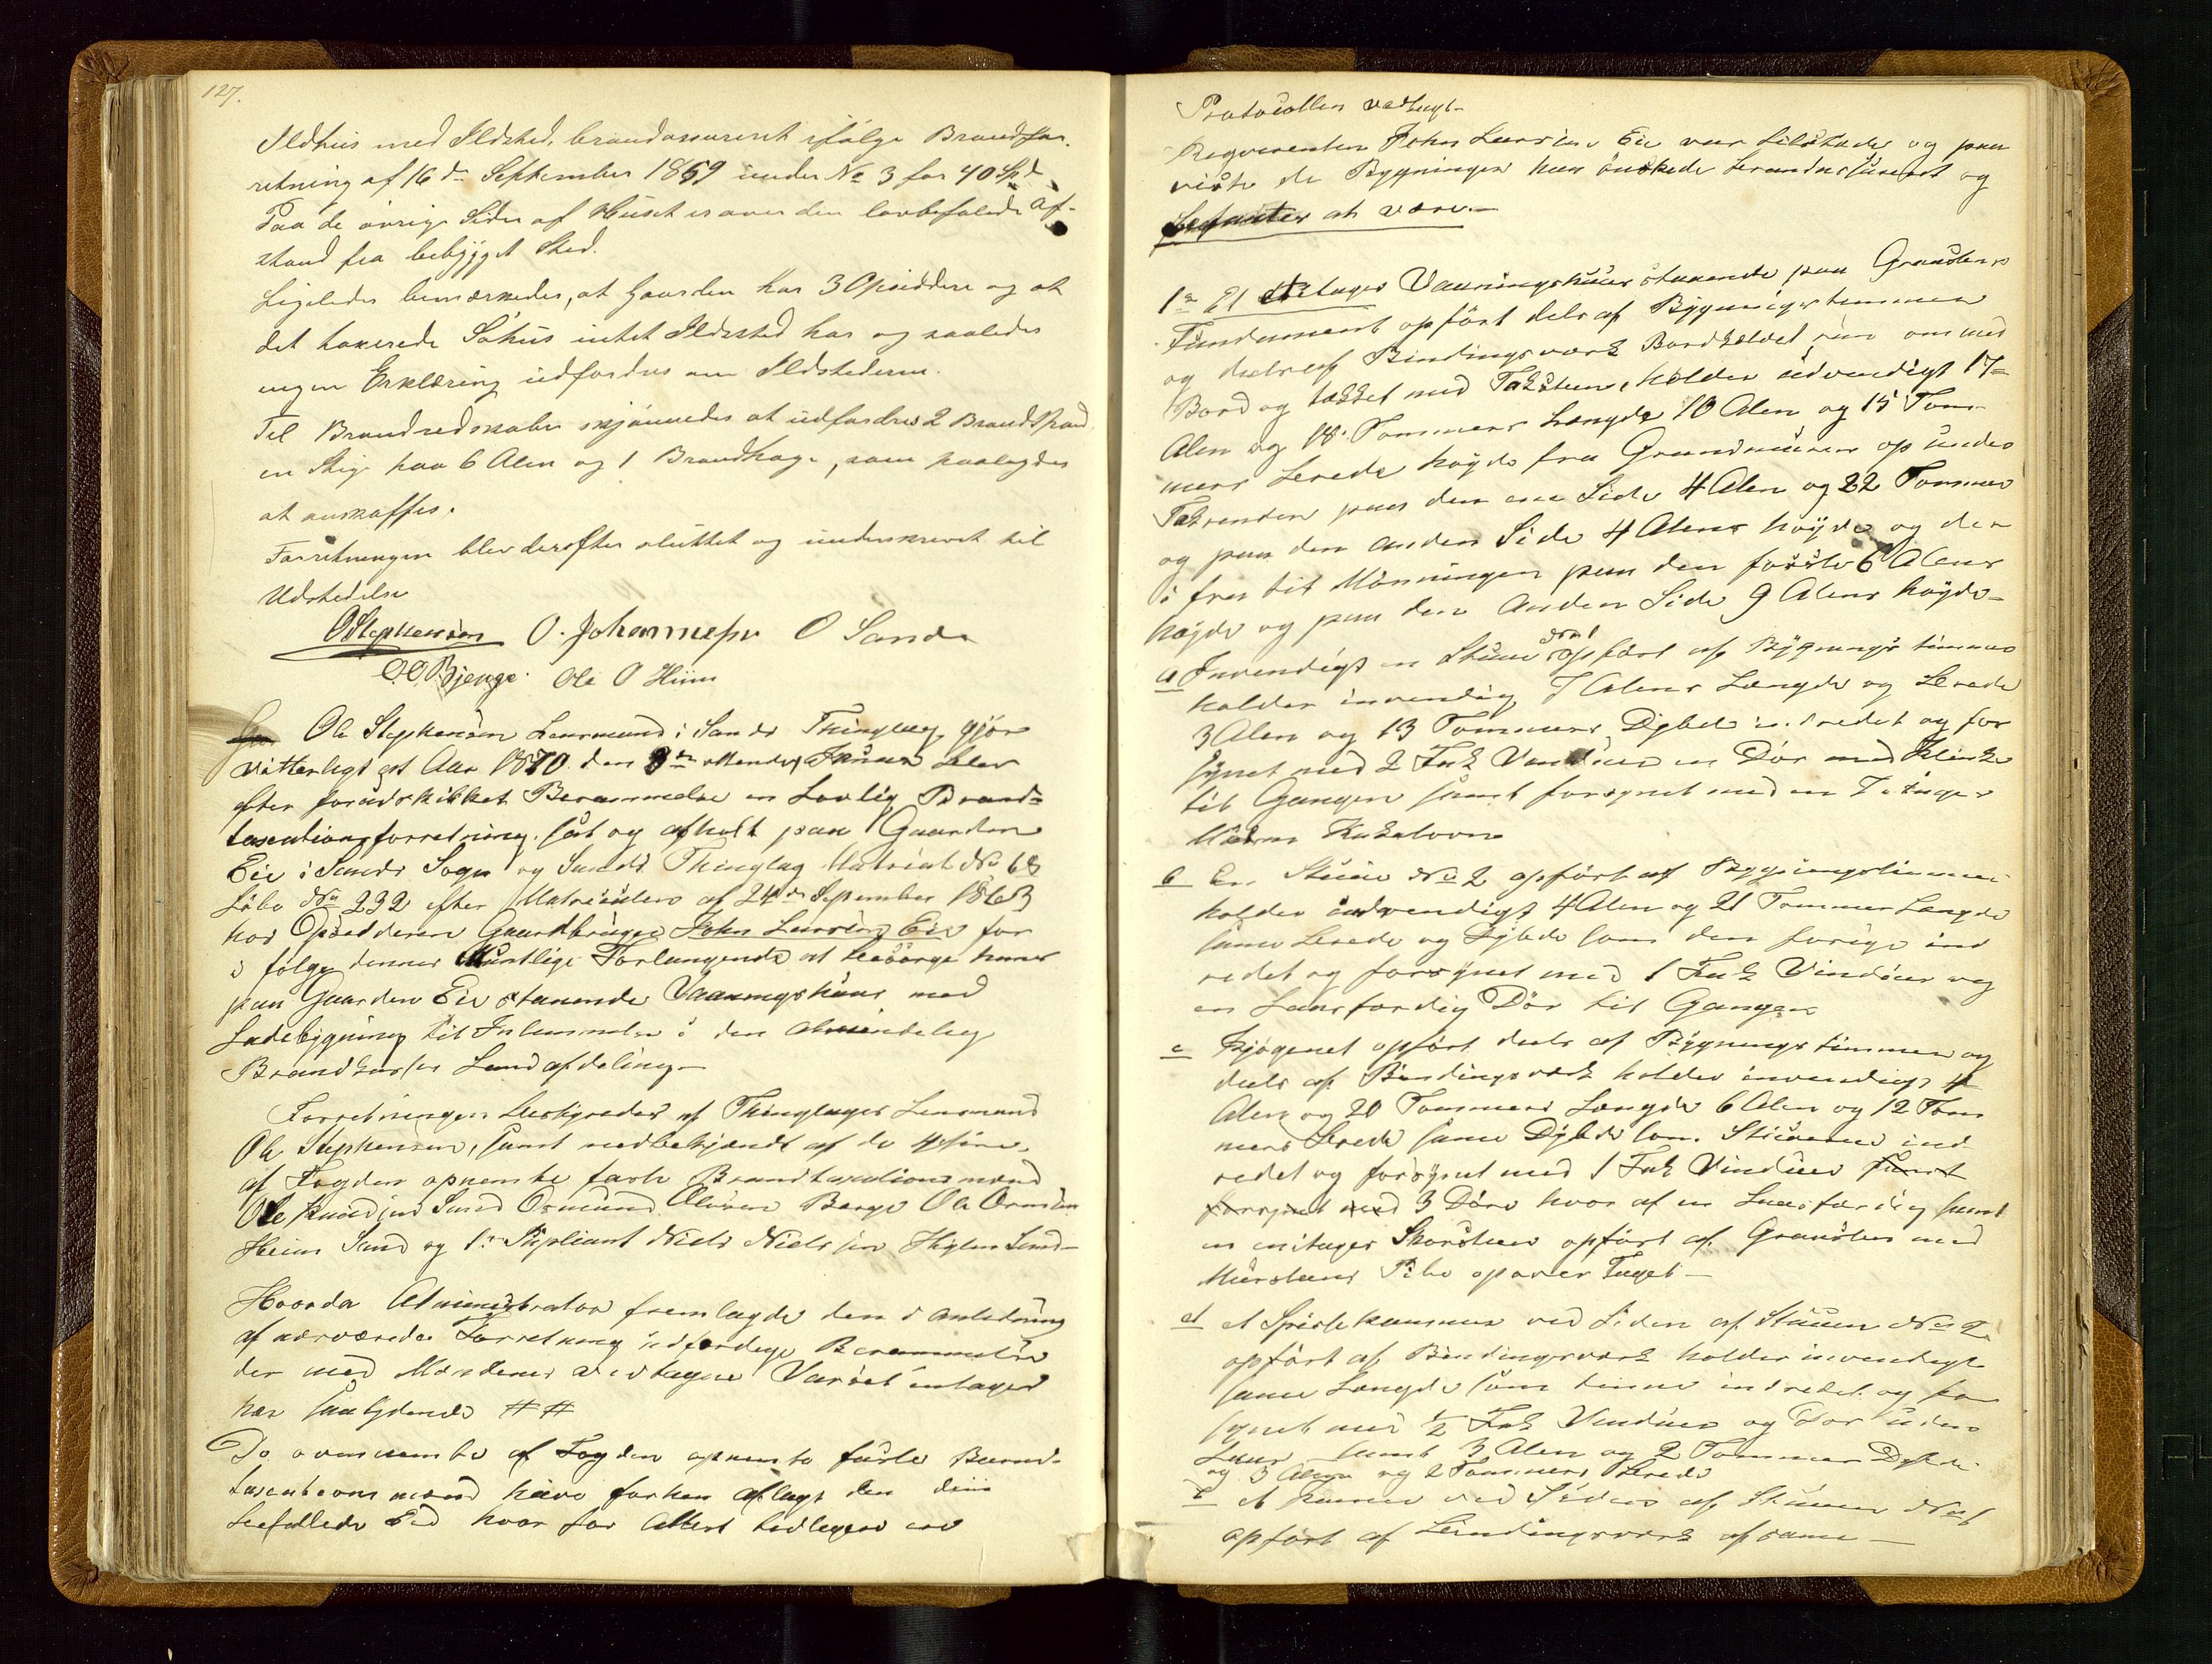 127.
Ildhus med Ildsted, brandassureret ifølge Brandfor-
retning af 16de September 1869 under No 3 for 40 Spd.
Paa de øvrige Sider af Huset er over den lovbefalede Af-
stand fra bebygget Sted.
Ligeledes bemærkedes, at Gaarden har 3 Opsiddere og at
det taxerede Søhus intet Ildsted har og saaledes
ingen Erklæring udfordres om Ildstederne.
Til Brandredskaber skjønnedes at udfordres 2 Brandspand,
en Stige paa 6 Alen og 1 Brandhage, som paalagdes
at anskaffes.
Forretningen blev derefter sluttet og underskrevet til
Udstedelse
OStephensen O. Johannesen O Sande
OOBjerge Ole O Hiim
Ole Stephensen Lensmand i Sands Thinglag gjør
vitterligt at Aar 1870 den 8de ottende Januar blev
efter forudskikket Berammelse en Lovlig Brand-
taxationsforretning sat og afholt paa Gaarden
Eie i Sands Sogn og Sands Thinglag Matrikl No 68
Løbe No 232 efter Matriculens af 24de September 1863
hos Opsidderen Gaardbruger John Larsen Eie for
i følge dennes Muntlige Forlangende at besørge hans
paa Gaarden Eie staaende Vaaningshuus med
Ladebygning til Indlemmelse i den almindelig
Brandkasses Landafdeling
Forretningen bestyredes af Thinglagets Lensmand
Ole Stephensen, samt medbekjendt af de 4 fire
af Fogden opnemte faste Brandtaxationsmænd
Ole Knudsen Sand Osmund Olsen Berge Ole Ormsen
Heim Sand og 1ste Supliant Niels Nielsen Hiylen Sand
Hvorda Administrator fremlagde den i anledning
af nærværende Forretning udfærdige Berammelse
der med Mændenes vedtagne Varsel intages
her saalydende ##
De ovennemte af Fogden opnemte faste Brand-
taxationsmænd have forhen aflagt den dem
befallede Ed hvor for Attest tidligere er
Protocollen vedlagt
Reqverenten John Larsen Eie var tilstede og paa
viste de Bygninger han ønskede brandassureret og
befantes at være.
1ste Et etages Vaaningshuus staaende paa Graastens
Fundament opført dels af Bygningstømmer
og deels af Bindingsværk Bordklædet run om med
Bord og tækket med Taksteen, holder udvendigt 17
Alen og 18 Tommers Længde 10 Alen og 15 Tom-
mers brede høyde fra Grundmuren op under
Takrenden paa den ene Side 4 Alen og 22 Tommer
og paa den anden Side 4 Alens høyde og der
i fra til Mønningen paa den første 6 Alens
høyde og paa den Anden Side 9 Alens høyde
a Invendigt en Stue No 1 opført af Bygningstømmer
holder invendig 7 Alens Længde og brede
3 Alen og 13 Tommers Dybde indredet og for
synet med 2 Fak Vinduer en Dør med Klinke
til Gangen samt forsynet med en 2 etages
Malm Kakelovn
b En Stue No 2 opført af Bygningstømmer
holder indvendigt 4 Alen og 21 Tommer Længde
samme brede og Dybde som den forige ind
redet og forsynet med 1 Fak Vinduer og
en laasfærdig Dør til Gangen
c Kjøgenet opført deels af Bygningstømmer og
deels af Bindingsværk holder invendigt 4
Alen og 20 Tommers Længde 6 Alen og 12 Tom
mers brede samme Dybde som Stuerne ind
redet og forsynet med 1 Fak Vinduer samt
forsynet med 3 Døre hvor af en Laasfærdig samt
en enetages Skorsteen opført af Graasten med
Mursteens Pibe op over Taget
d et Spisekammer ved Siden af Stuen No 2
opført af Bindingsværk holder invendigt
samme Længde som denne indredet og for
synet med 1/2 Fak Vinduer og Dør uden
Laas samt 3 Alen og 2 Tommer Dybde
og 3 Alen og 2 Tommers brede
e et kammer ved Siden af Stuen No 1
opført af bindingsværk af samme